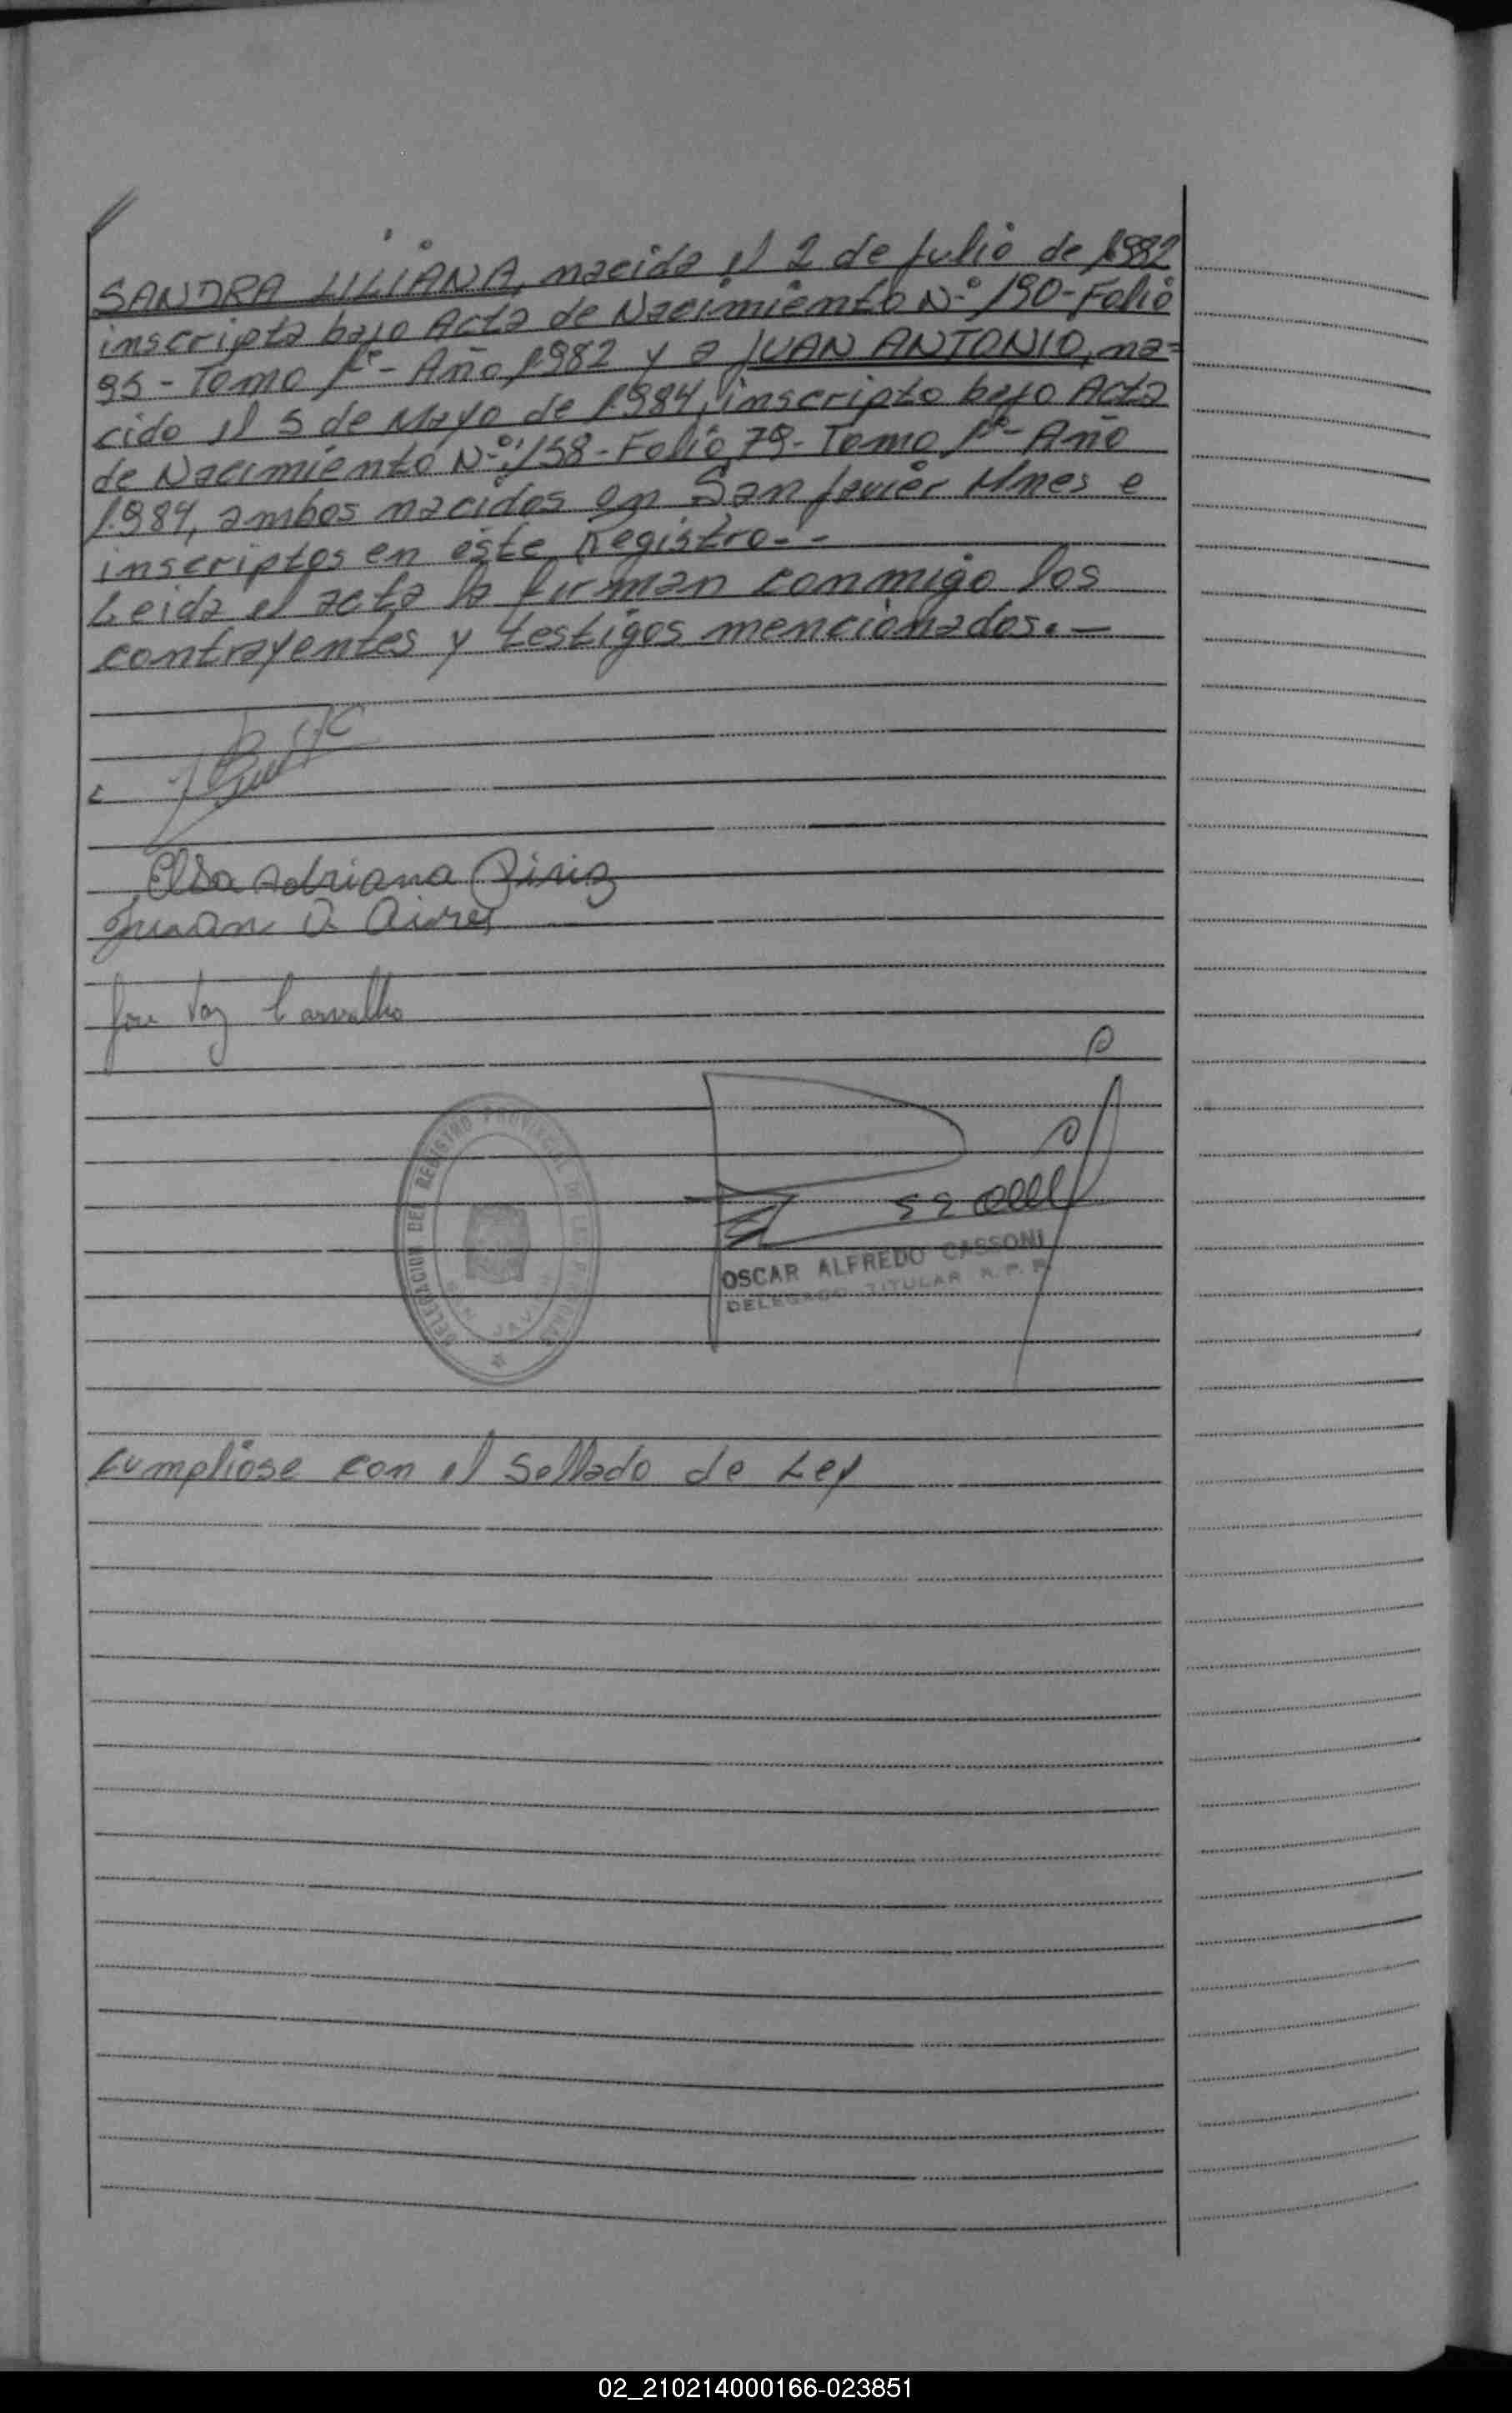 SANDRA LILIANA, nacida el 2 de Julio de 1982
inscripta bajo Acta de Nacimiento N.º 190 - Folio
95 - Tomo 1º - Año 1982 y a JUAN ANTONIO, na=
cido el 5 de Mayo de 1984, inscripto bajo Acta
de Nacimiento N.º 158 - Folio 79 - Tomo 1º - Año
1.984, ambos nacidos en San Javier Mnes e
inscriptos en este Registro.-
Leida el acta la firman conmigo los
contrayentes y testigos mencionados.-
Elsa Adriana Piriz
Juan A Aires
Jose Vaz Carvalho
DELEGACION DEL REGISTRO PROVINCIAL DE LAS PERSONAS
SAN JAVIER
OSCAR ALFREDO CASSONI
DELEGADO TITULAR R. P. P.
Cumpliose con el Sellado de Ley
02_210214000166-023851